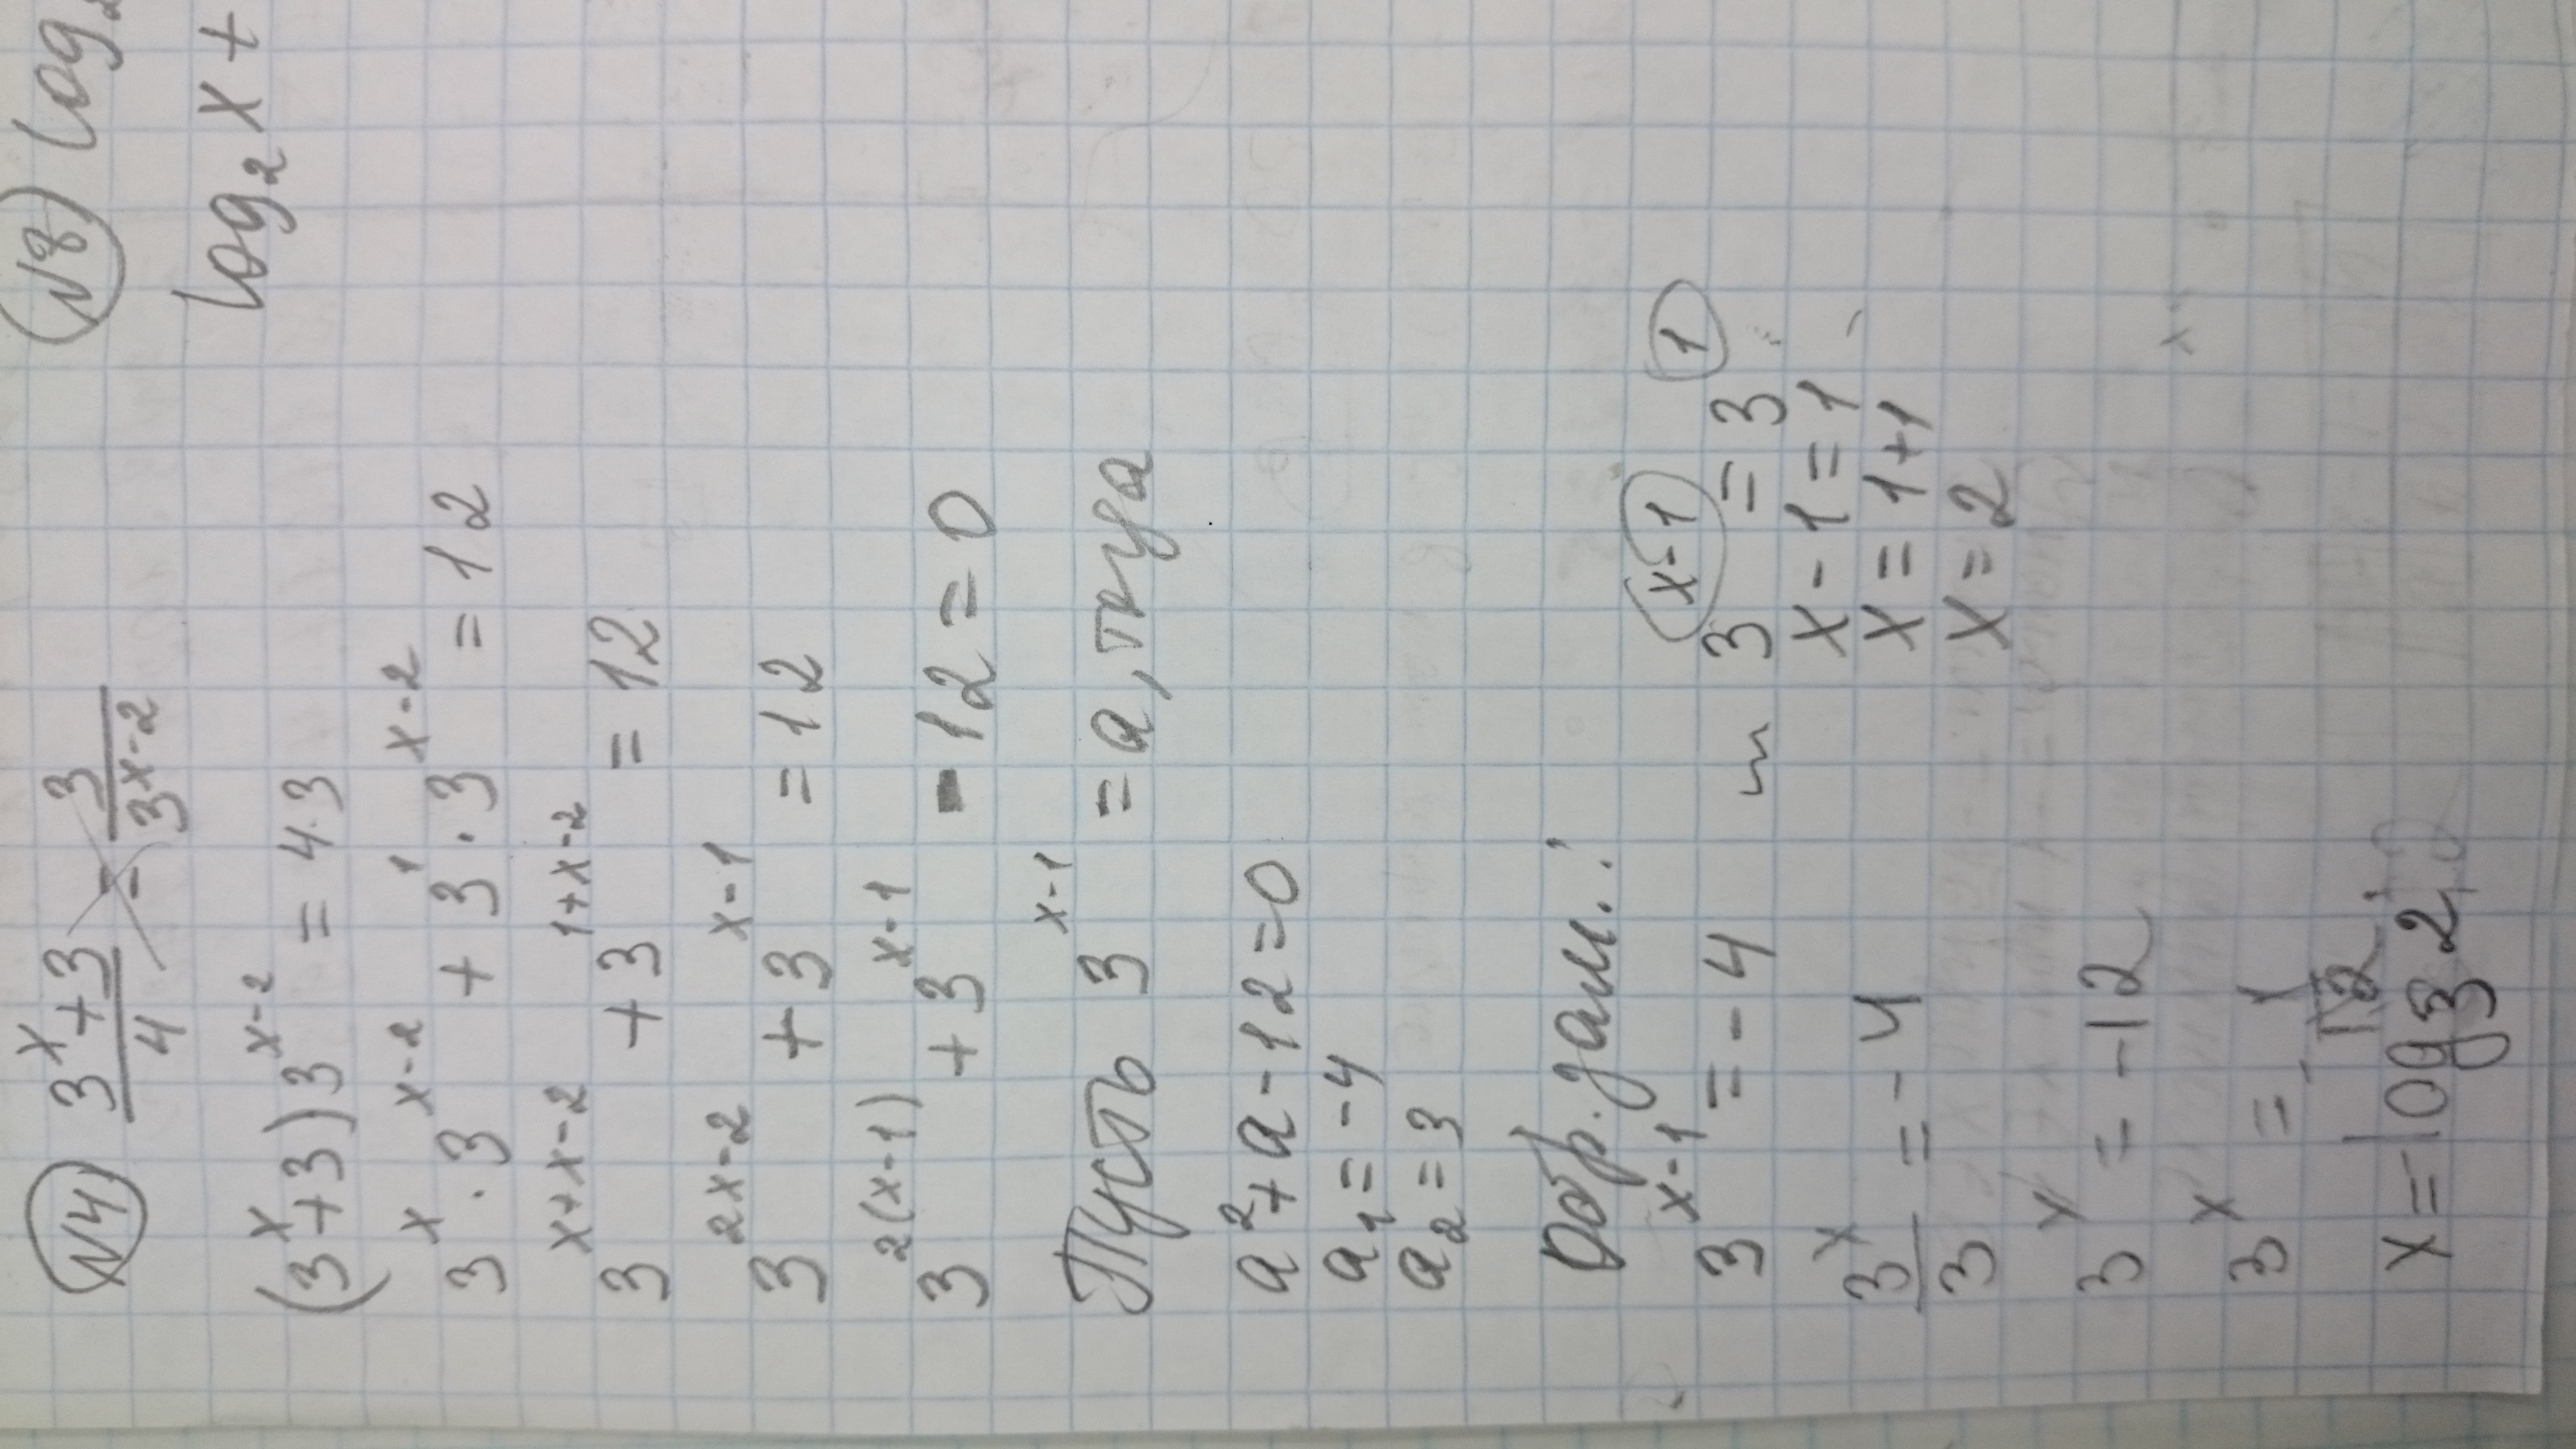 №4) (3^x+3)/4 = 3/3^(x-2)
(3^x+3)3^(x-2) = 4·3
3^x · 3^(x-2) + 3^1 · 3^(x-2) = 12
3^(x+x-2) + 3^(1+x-2) = 12
3^(2x-2) + 3^(x-1) = 12
3^(2(x-1)) + 3^(x-1) - 12 = 0
Пусть 3^(x-1) = a, тгуа
a²+a-12=0
a₁=-4
a₂=3
Обр. зам.:
3^(x-1) = -4 или 3^(x-1) = 3^1
3^x/3 = -4
3^x = -12
3^x =
x = log₃
x-1=1
x=1+1
x=2
№8) log₂
log₂x+